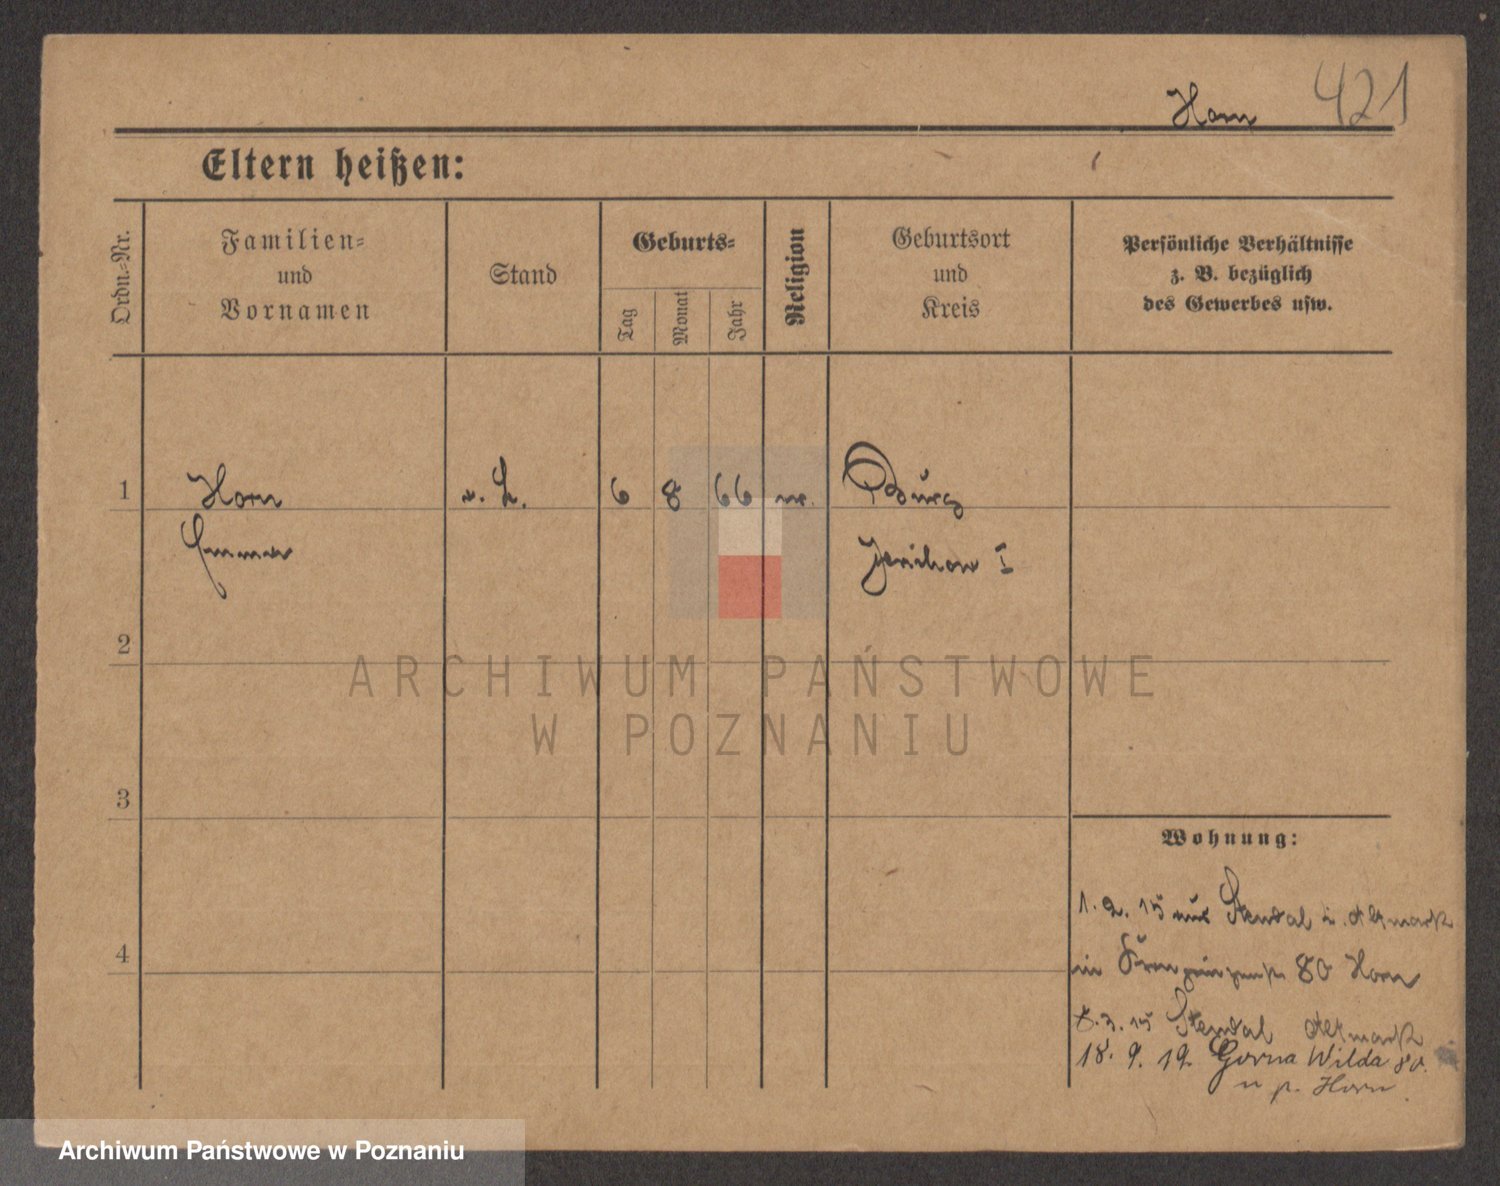 Horn 421
Eltern heißen:
Ordn.-Nr.
Familien-
und
Vornamen
Stand
Geburts-
Tag
Monat
Jahr
Religion
Geburtsort
und
Kreis
Persönliche Verhältnisse
z. B. bezüglich
des Gewerbes usw.
1 Horn 6 8 66 Burg
Emma Jerichow I
2
ARCHIWUM PAŃSTWOWE
W POZNANIU
3
Wohnung:
1. 2. 15 aus Stendal i. Altmark
4
in 80 Horn
8. 3. 15 Stendal Altmark
18. 9. 19. Gorna Wilda 80.
u p. Horn
Archiwum Państwowe w Poznaniu